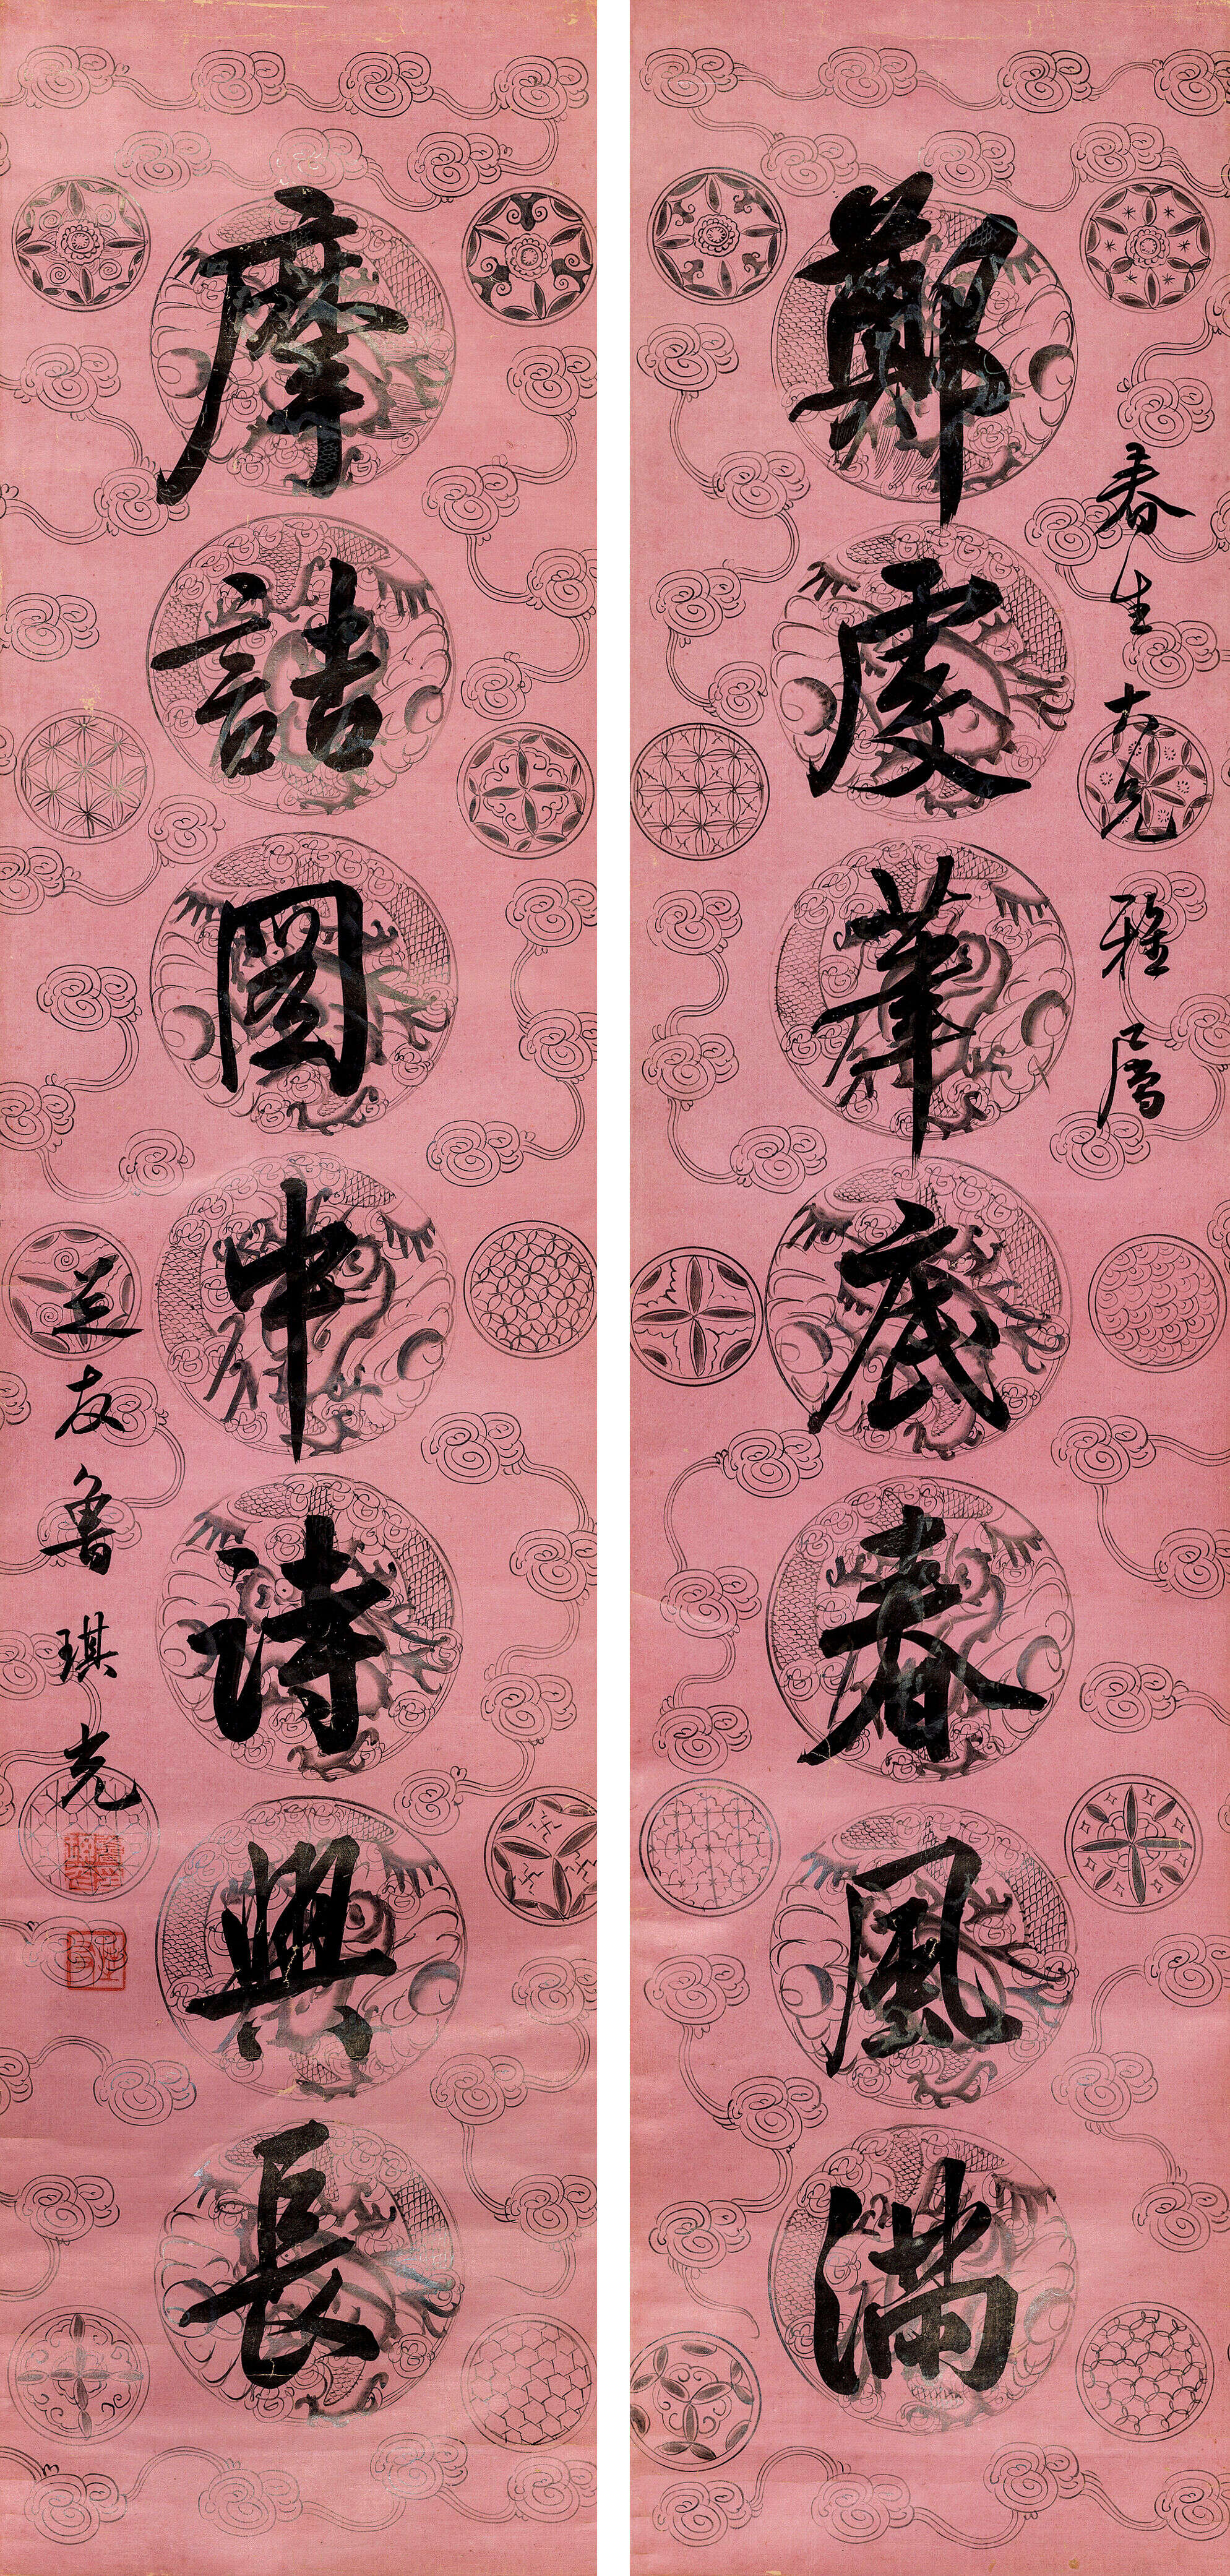 春生大兄雅屬
鄭虔筆底春風滿
摩詰圖中詩興長
芝友魯琪光